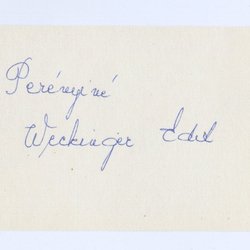 Perényiné
Weckinger Edit